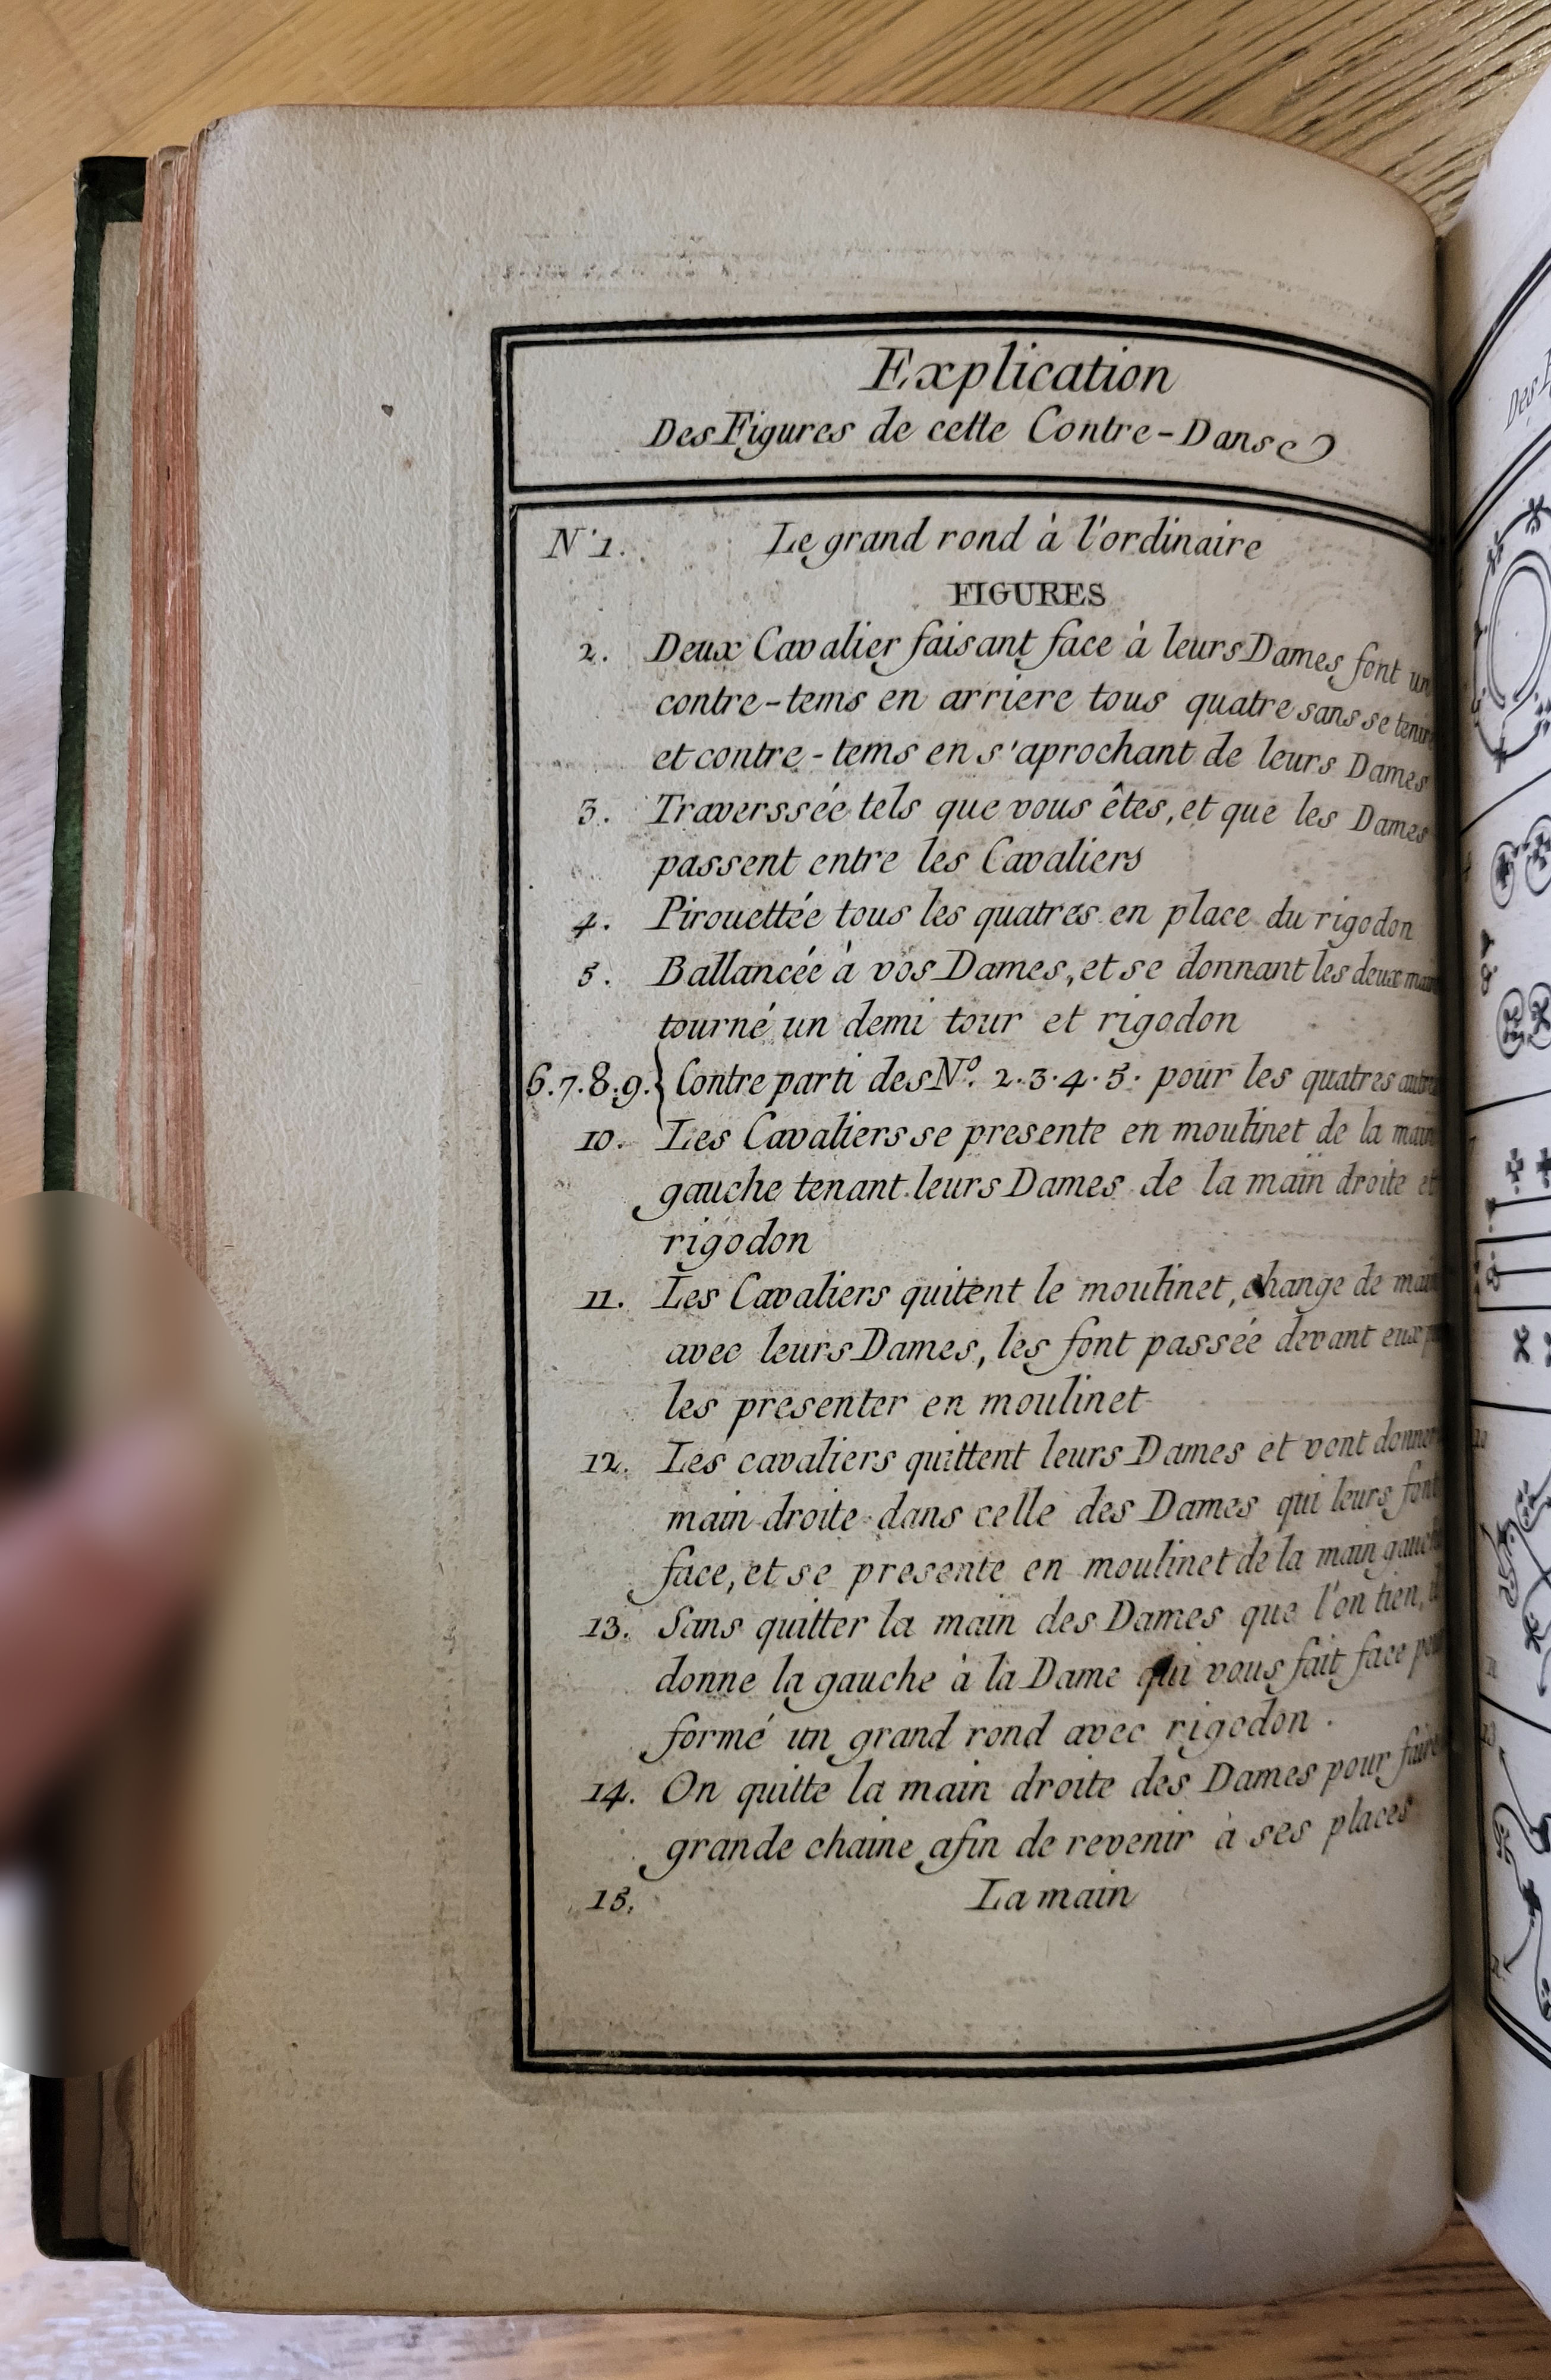 Explication
Des Figures de cette Contre-Danse
N° 1. Le grand rond à l'ordinaire
FIGURES
2. Deux Cavalier faisant face à leurs Dames font un
contre-tems en arriere tous quatre sans se tenir
et contre-tems en s'aprochant de leurs Dames
3. Traverssée tels que vous êtes, et que les Dames
passent entre les Cavaliers
4. Pirouettée tous les quatres en place du rigodon
5. Ballancée à vos Dames, et se donnant les deux
tourné un demi tour et rigodon
6.7.8.9.} Contre parti des N°. 2.3.4.5. pour les quatres
10. Les Cavaliers se presente en moulinet de la main
gauche tenant leurs Dames de la main droite et
rigodon
11. Les Cavaliers quitent le moulinet, change de main
avec leurs Dames, les font passée devant eux
les presenter en moulinet
12. Les cavaliers quittent leurs Dames et vont donner
main droite dans celle des Dames qui leurs font
face, et se presente en moulinet de la main gauche
13. Sans quitter la main des Dames que l'on tien,
donne la gauche à la Dame qui vous fait face
formé un grand rond avec rigodon.
14. On quitte la main droite des Dames pour faire
grande chaine afin de revenir à ses places
15. La main